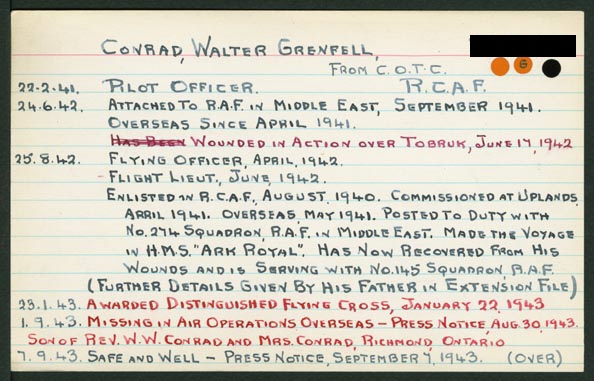 CONRAD, WALTER GRENFELL,
FROM C.O.T.C.
6
22-2-41. PILOT OFFICER. R.C.A.F.
24.6.42. ATTACHED TO R.A.F. IN MIDDLE EAST, SEPTEMBER 1941.
OVERSEAS SINCE APRIL 1941.
HAS BEEN WOUNDED IN ACTION OVER TOBRUK, JUNE 17, 1942
25.8.42. FLYING OFFICER, APRIL, 1942.
- FLIGHT LIEUT., JUNE, 1942.
ENLISTED IN R.C.A.F., AUGUST, 1940. COMMISSIONED AT UPLANDS
APRIL 1941. OVERSEAS, MAY 1941. POSTED TO DUTY WITH
NO. 274 SQUADRON, R.A.F. IN MIDDLE EAST. MADE THE VOYAGE
IN H.M.S. "ARK ROYAL". HAS NOW RECOVERED FROM HIS
WOUNDS AND IS SERVING WITH NO. 145 SQUADRON, R.A.F.
(FURTHER DETAILS GIVEN BY HIS FATHER IN EXTENSION FILE)
23.1.43. AWARDED DISTINGUISHED FLYING CROSS, JANUARY 22, 1943
1.9.43. MISSING IN AIR OPERATIONS OVERSEAS - PRESS NOTICE, AUG. 30, 1943.
SON OF REV. W.W. CONRAD AND MRS. CONRAD, RICHMOND, ONTARIO
7.9.43. SAFE AND WELL - PRESS NOTICE, SEPTEMBER 7, 1943. (OVER)